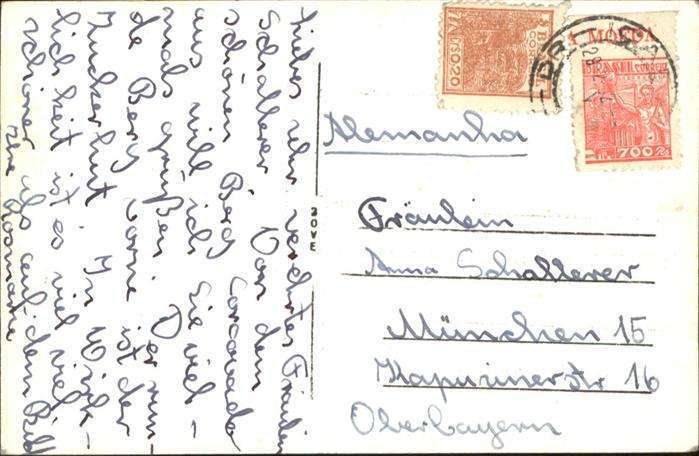 Liebes sehr verehrtes Fräulein
Schallerer Von dem
schönen Berg Corcovado
aus will ich Sie viel-
mals grüßen. Der run-
de Berg vorne ist der
Zuckerhut. In Wirk-
lichkeit ist es viel viel
schöner als auf dem Bild
Ihre Rosmarie
JOVE
BRASIL
CORREIO
0,20
A MOEDA
BRASIL CORREIO
700 Rs
Alemanha
Fräulein
Anna Schallerer
München 15
Kapuzinerstr 16
Oberbayern